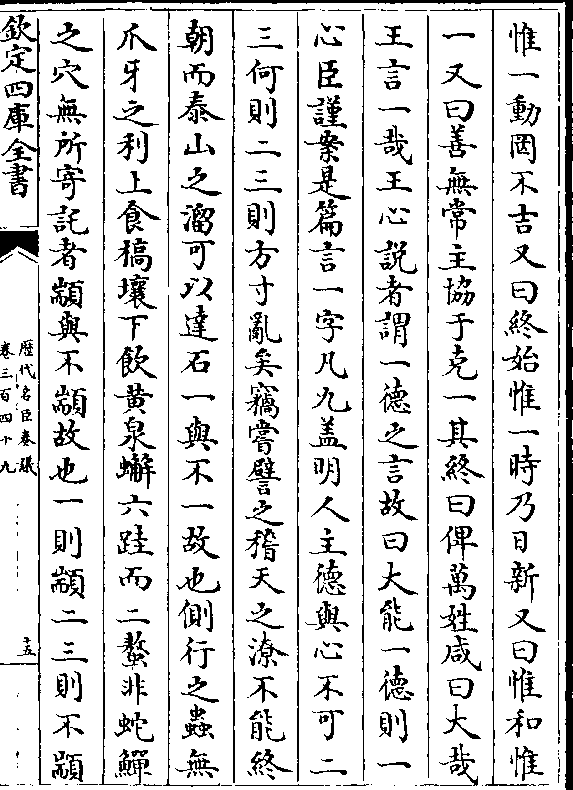 惟一動罔不吉又曰終始惟一時乃日新又曰惟和惟
一又曰善無常主協于克一其終曰俾萬姓咸曰大哉
王言一哉王心説者謂一德之言故曰大能一德則一
心臣謹案是篇言一字凡九盖明人主德與心不可二
三何則二三則方寸亂矣竊嘗譬之稽天之潦不能終
朝而泰山之溜可以達石一與不一故也側行之蟲無
爪牙之利上食槁壤下飲黄泉蠏六跬而二螯非蛇鱓
之穴無所寄託者顓與不顓故也一則顓二三則不顓
欽定四庫全書
歴代名臣奏議
卷三百四十九
十五